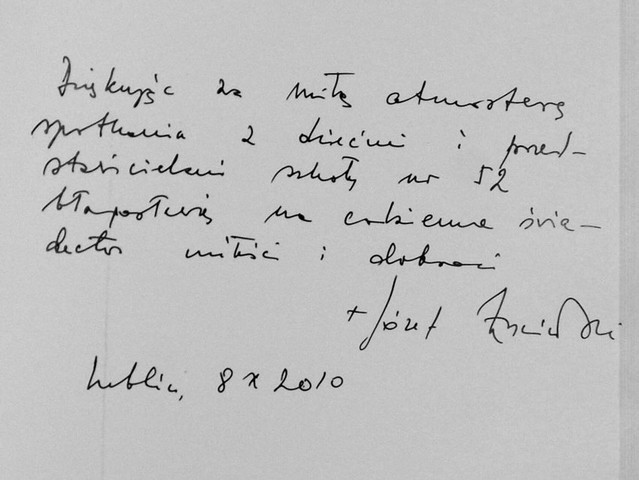 Dziękując za miłą atmosferę
spotkania z dziećmi i przed-
stawicielami szkoły nr 52
błogosławię na codzienne świa-
dectwo miłości i dobroci
+ Józef Życiński
Lublin, 8 X 2010